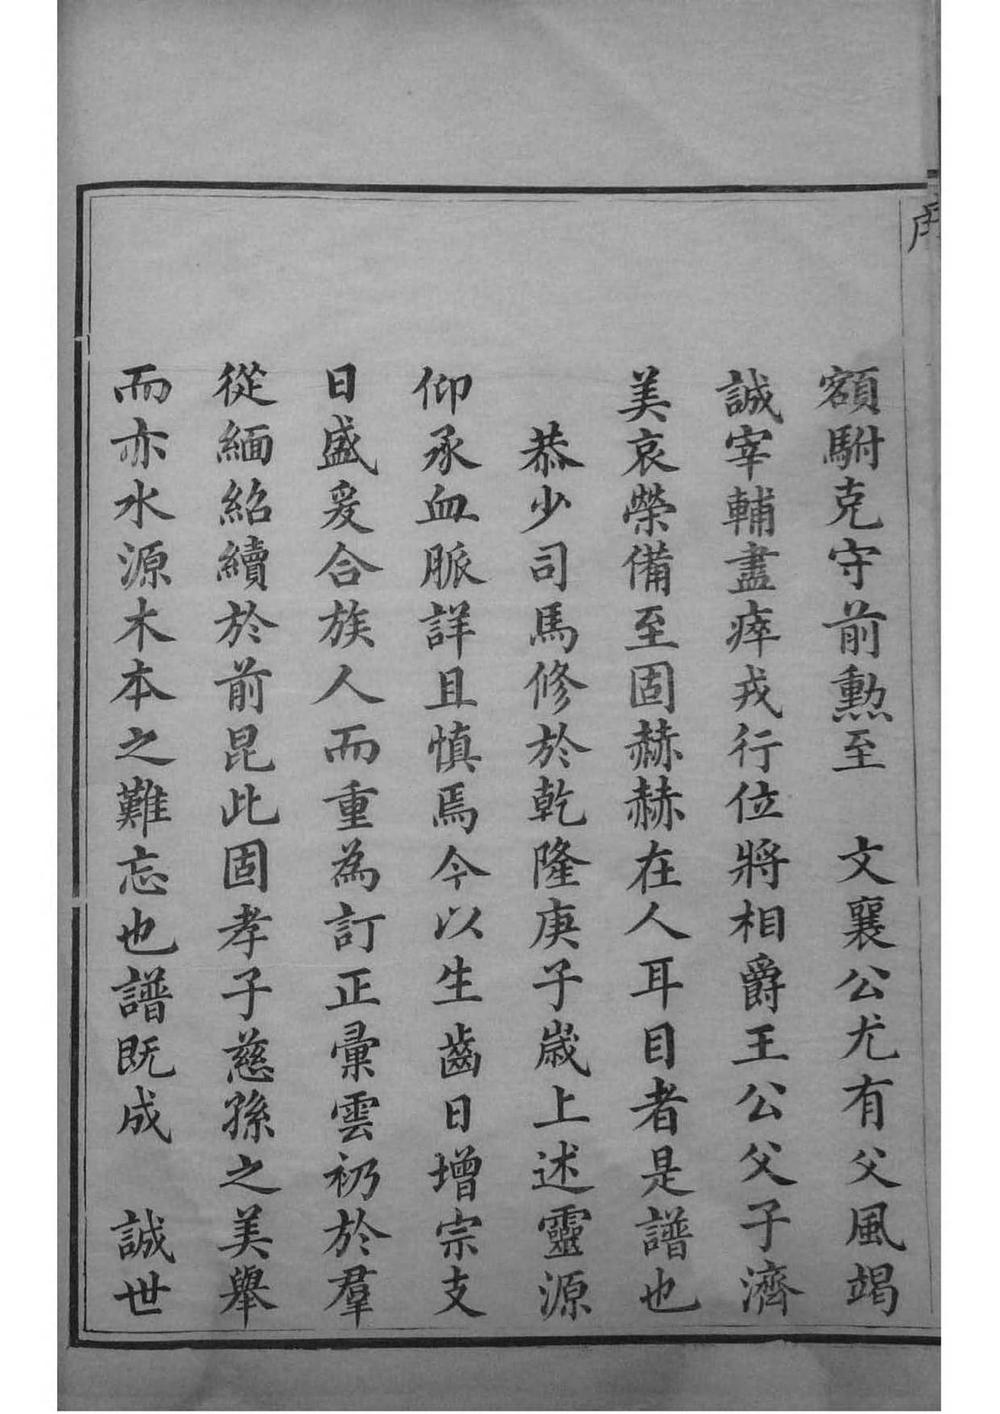 序
額駙克守前勳至　文襄公尤有父風竭
誠宰輔盡瘁戎行位將相爵王公父子濟
美哀榮備至固赫赫在人耳目者是譜也
恭少司馬修於乾隆庚子歲上述靈源
仰承血脈詳且慎焉今以生齒日增宗支
日盛爰合族人而重為訂正彙雲礽於羣
從緬紹續於前昆此固孝子慈孫之美舉
而亦水源木本之難忘也譜既成　誠世